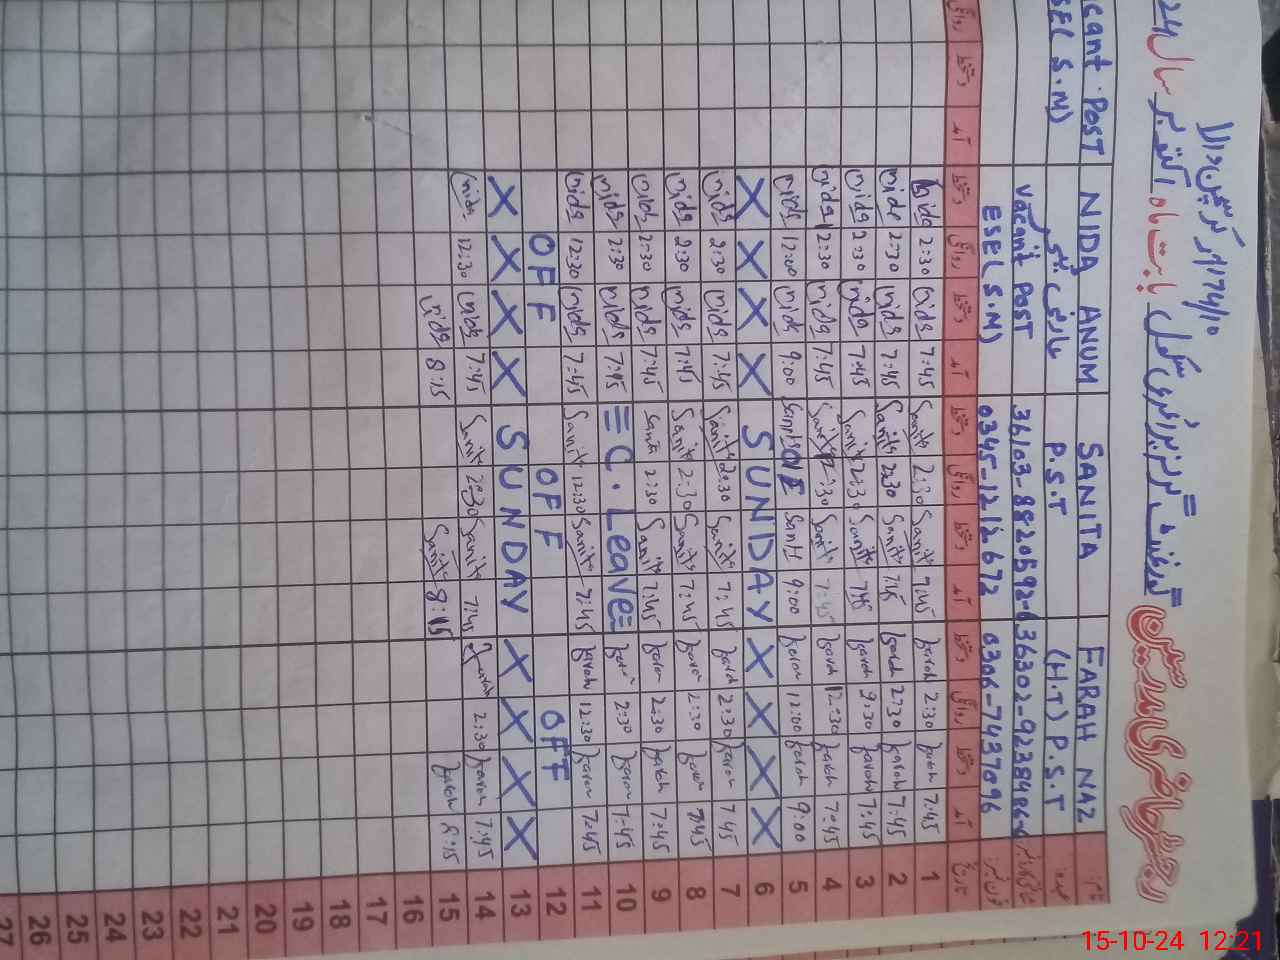 رجسٹر حاضری مدرسین گورنمنٹ گرلز پرائمری سکول بابت ماہ اکتوبر سال 24
نام FARAH NAZ SANITA NIDA ANUM cant POST
عہدہ (H.T) P.S.T P.S.T عارضی ESEL S.M)
36302-9238486- 36103-8820592-6 Vacant POST
فون نمبر 0306-7437096 0345-1212672 ESEL (S.M)
تاریخ آمد دستخط روانگی دستخط آمد دستخط روانگی دستخط آمد دستخط روانگی دستخط آمد دستخط روانگی
1 7:45 Farah 2:30 Farah 7:45 Sanita 2:30 Sanita 7:45 Nida 2:30 Nida
2 7:45 Farah 2:30 Farah 7:45 Sanita 2:30 Sanita 7:45 Nida 2:30 Nida
3 7:45 Farah 9:30 Farah 7:45 Sanita 2:30 Sanita 7:45 Nida 2:30 Nida
4 7:45 Farah 12:30 Farah 7:45 Sanita 12:30 Sanita 7:45 Nida 12:30 Nida
5 9:00 Farah 12:00 Farah 9:00 Sanita Sanita 9:00 Nida 12:00 Nida
6 X X X X SUNDAY X X X
7 7:45 Farah 2:30 Farah 7:45 Sanita 2:30 Sanita 7:45 Nida 2:30 Nida
8 7:45 Farah 2:30 Farah 7:45 Sanita 2:30 Sanita 7:45 Nida 2:30 Nida
9 7:45 Farah 2:30 Farah 7:45 Sanita 2:30 Sanita 7:45 Nida 2:30 Nida
10 7:45 Farah 2:30 Farah = C. Leave = 7:45 Nida 2:30 Nida
11 7:45 Farah 12:30 Farah 7:45 Sanita 12:30 Sanita 7:45 Nida 12:30 Nida
12 OFF OFF OFF
13 X X X X SUNDAY X X X
14 7:45 Farah 2:30 Farah 7:45 Sanita 2:30 Sanita 7:45 Nida 12:30 Nida
15 8:15 Farah 8:15 Sanita 8:15 Nida
16
17
18
19
20
21
22
23
24
25
26
27
15-10-24 12:21